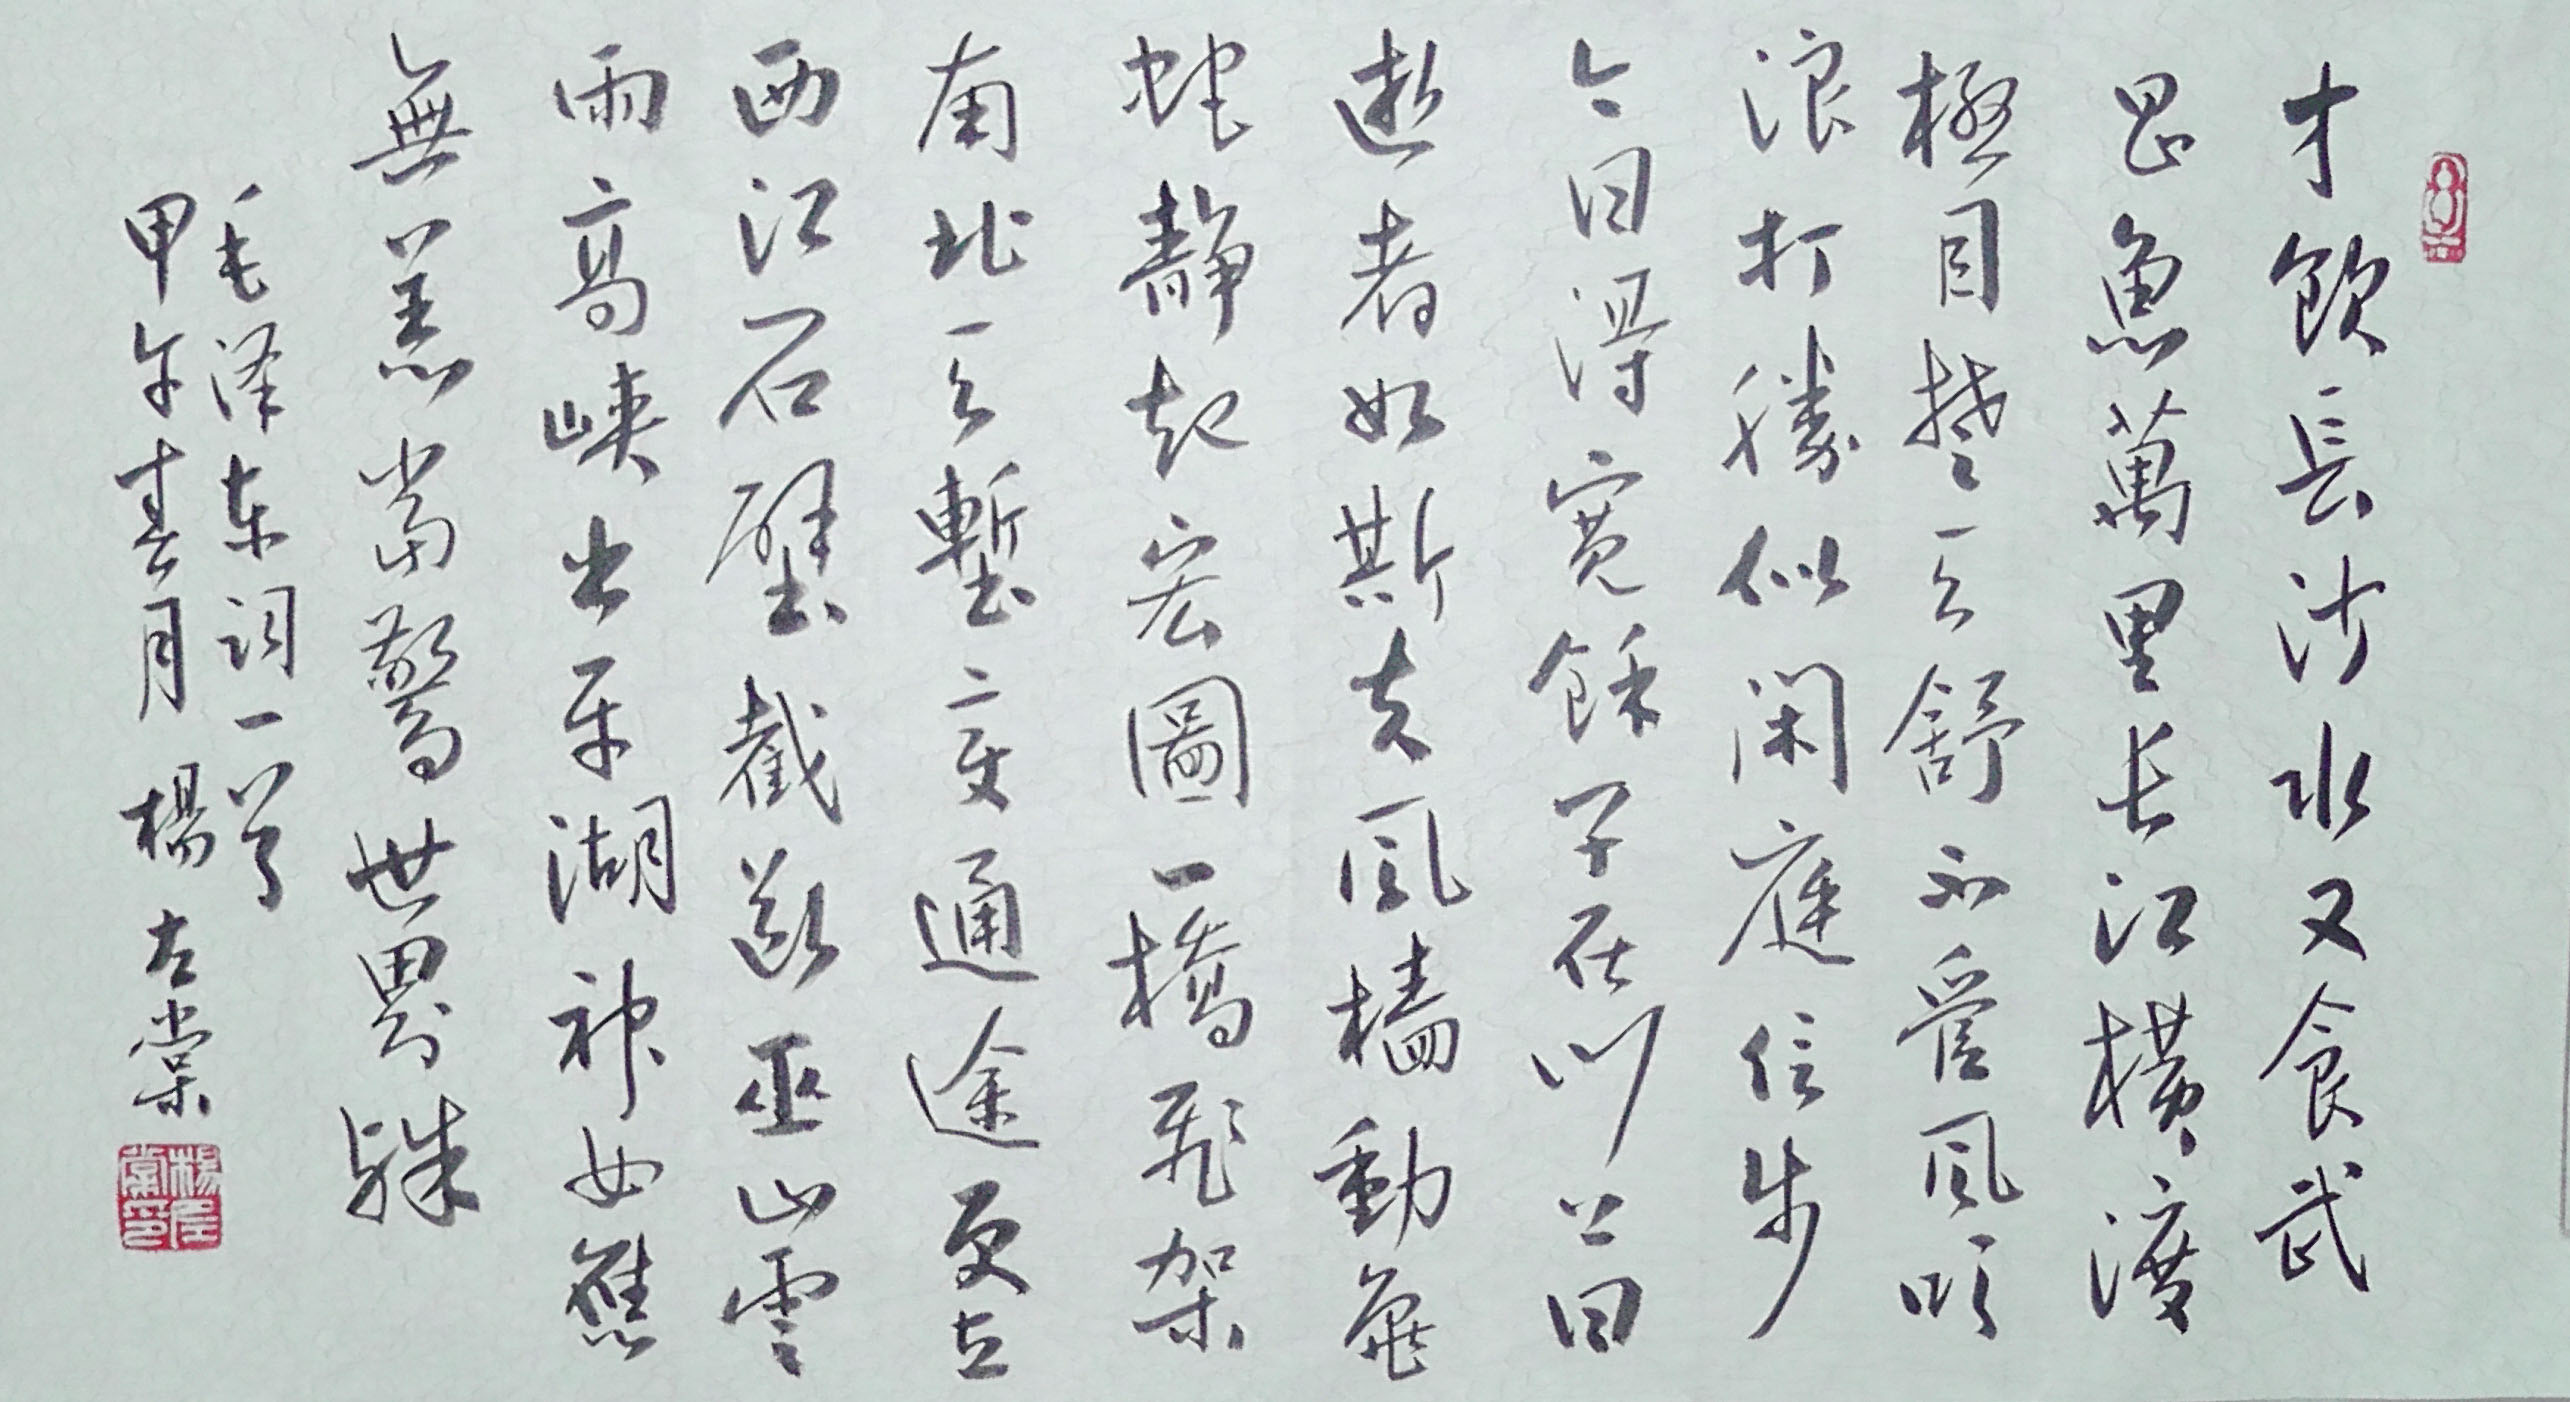 才飲長沙水又食武
昌魚萬里长江橫渡
極目楚天舒不管風吹
浪打勝似闲庭信步
今日得寬餘子在川上曰
逝者如斯夫風樯動龜
蛇靜起宏圖一橋飛架
南北天塹变通途更立
西江石壁截斷巫山雲
雨高峡出平湖神女應
無恙當驚世界殊
毛泽东词一首
甲午春月 楊左棠
楊左棠印